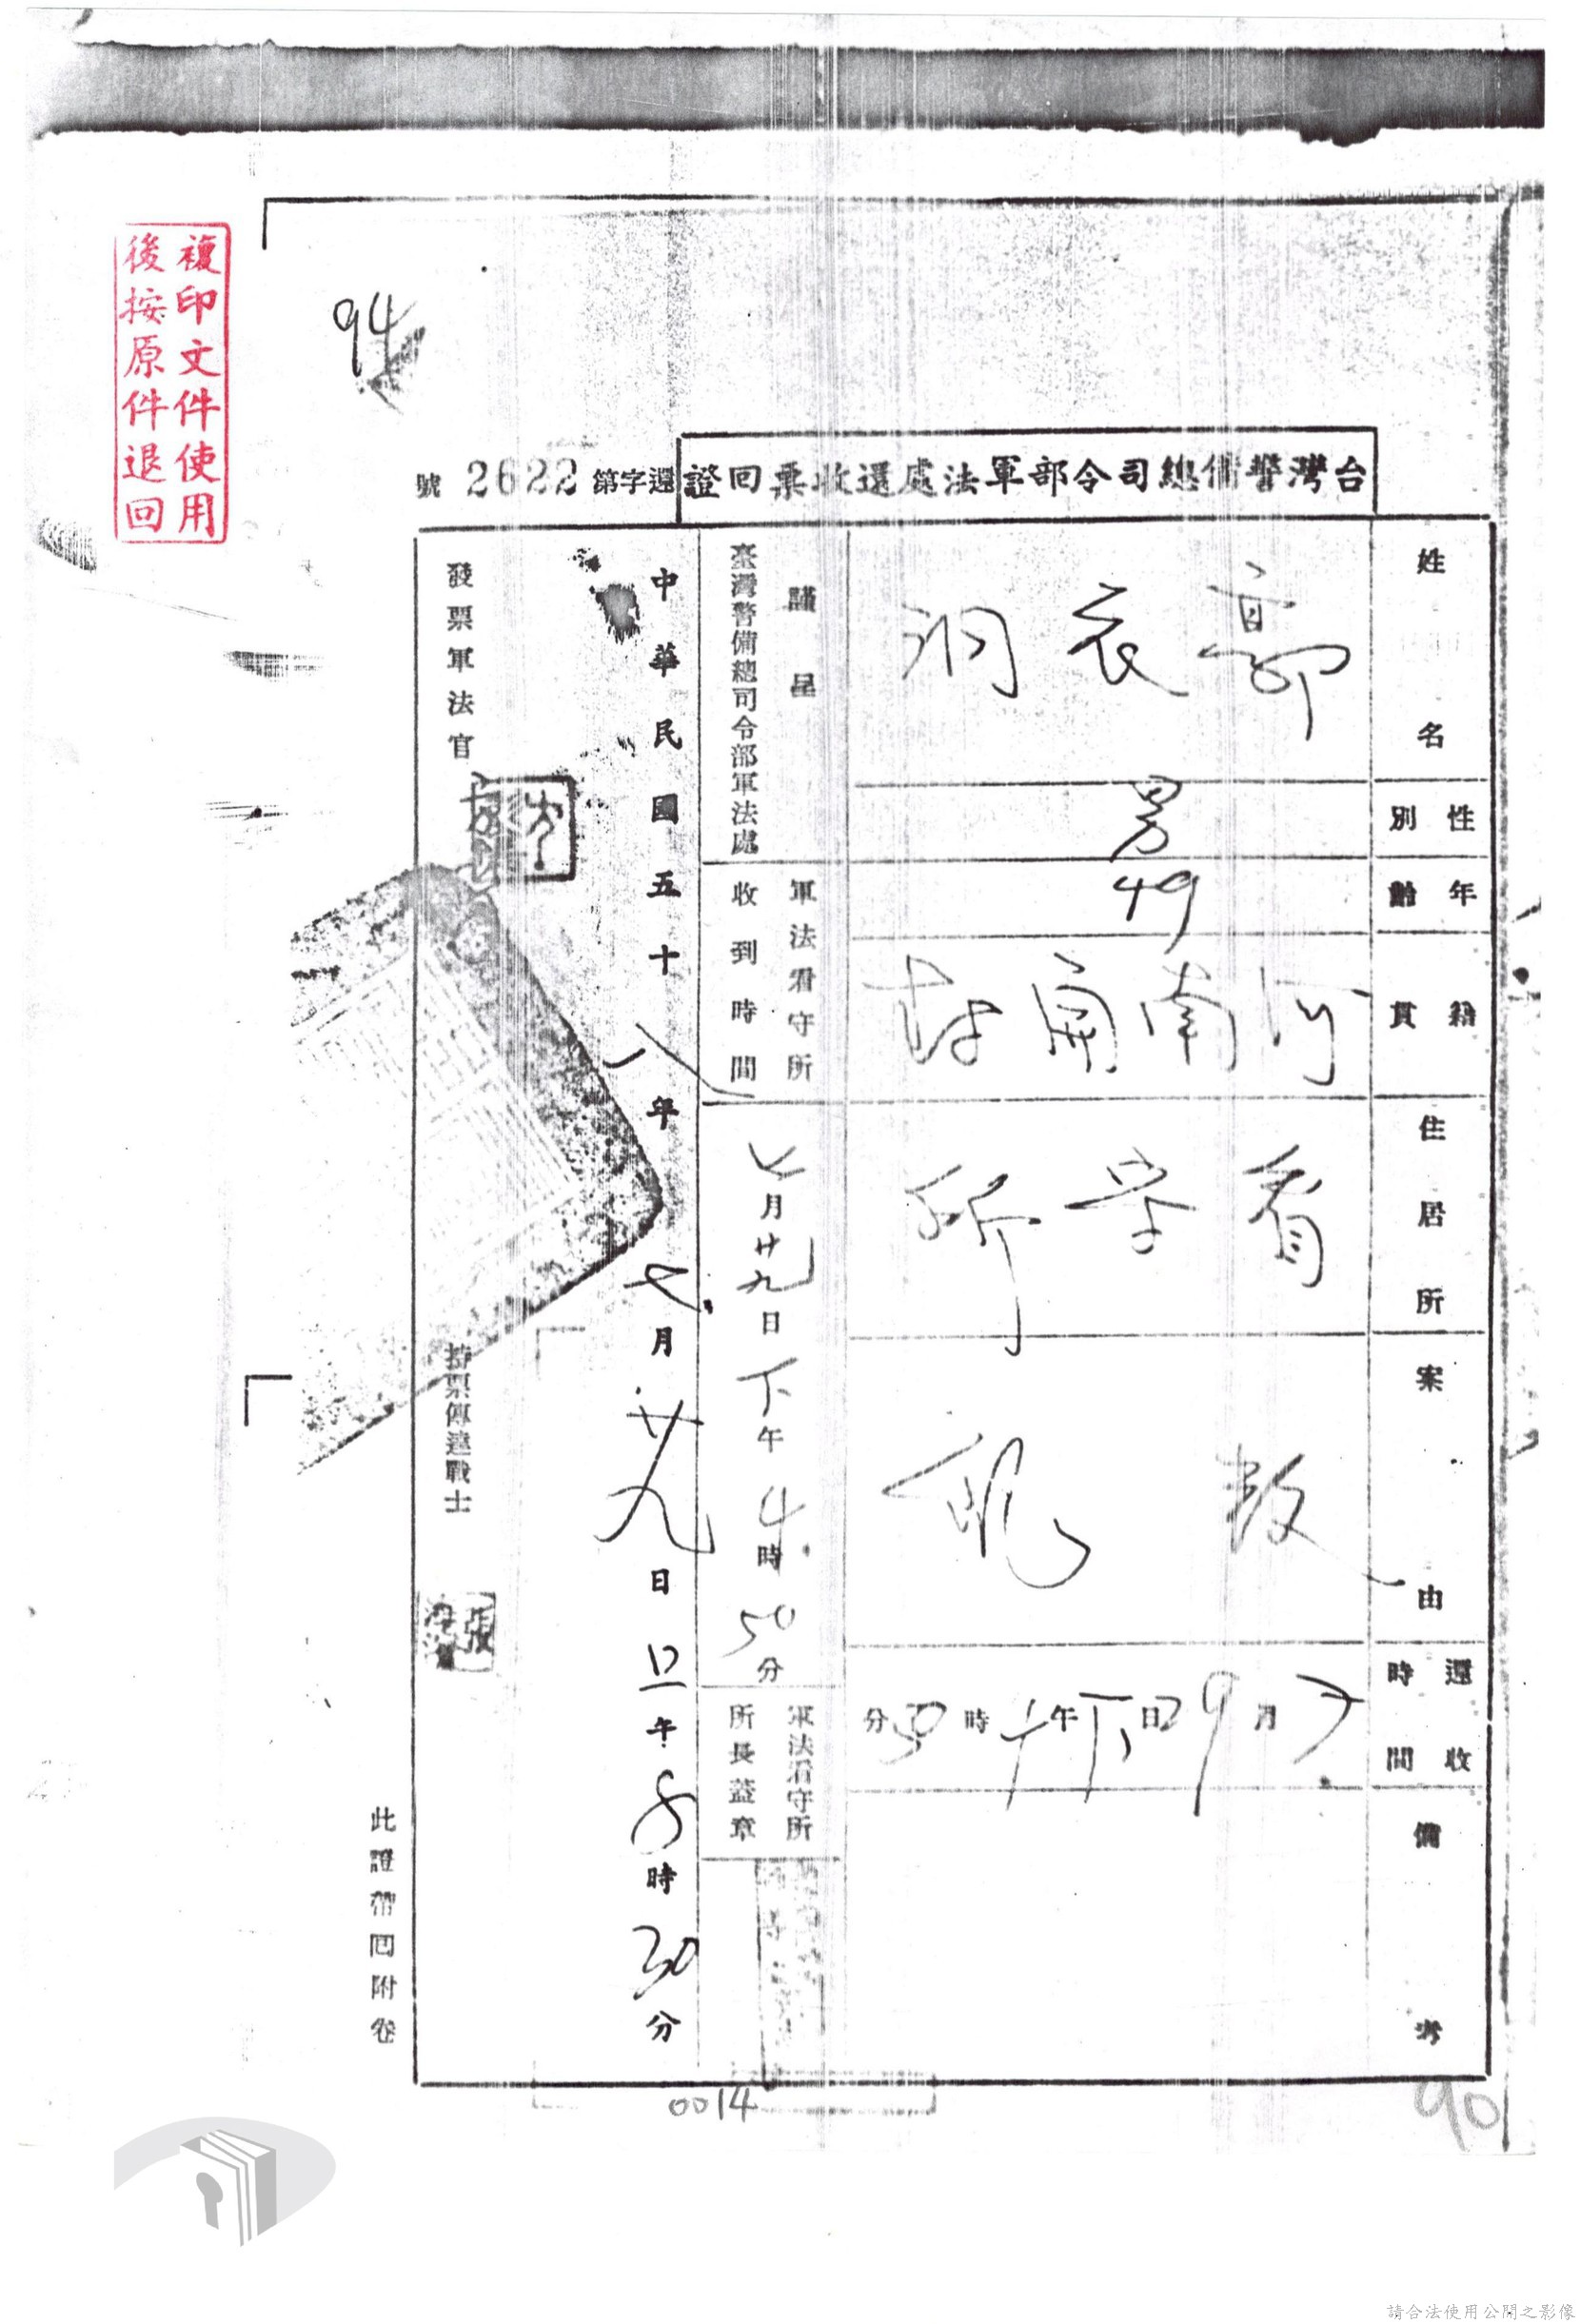 複印文件使用
後按原件退回
94
台灣警備總司令部軍法處還收票回證
還字第2622號
姓名
郭衣洞
性別
男
年齡
49
籍貫
河南開封
住居所
看守所
案由
叛亂
還收時間
7月29日下午 時50分
備考
謹呈
臺灣警備總司令部軍法處
軍法看守所
收到時間
七月廿九日下午4時50分
軍法看守所
所長蓋章
中華民國五十八年七月廿九日 午 時30分
發票軍法官
持票傳達戰士
張
此證帶回附卷
0014
90
請合法使用公開之影像